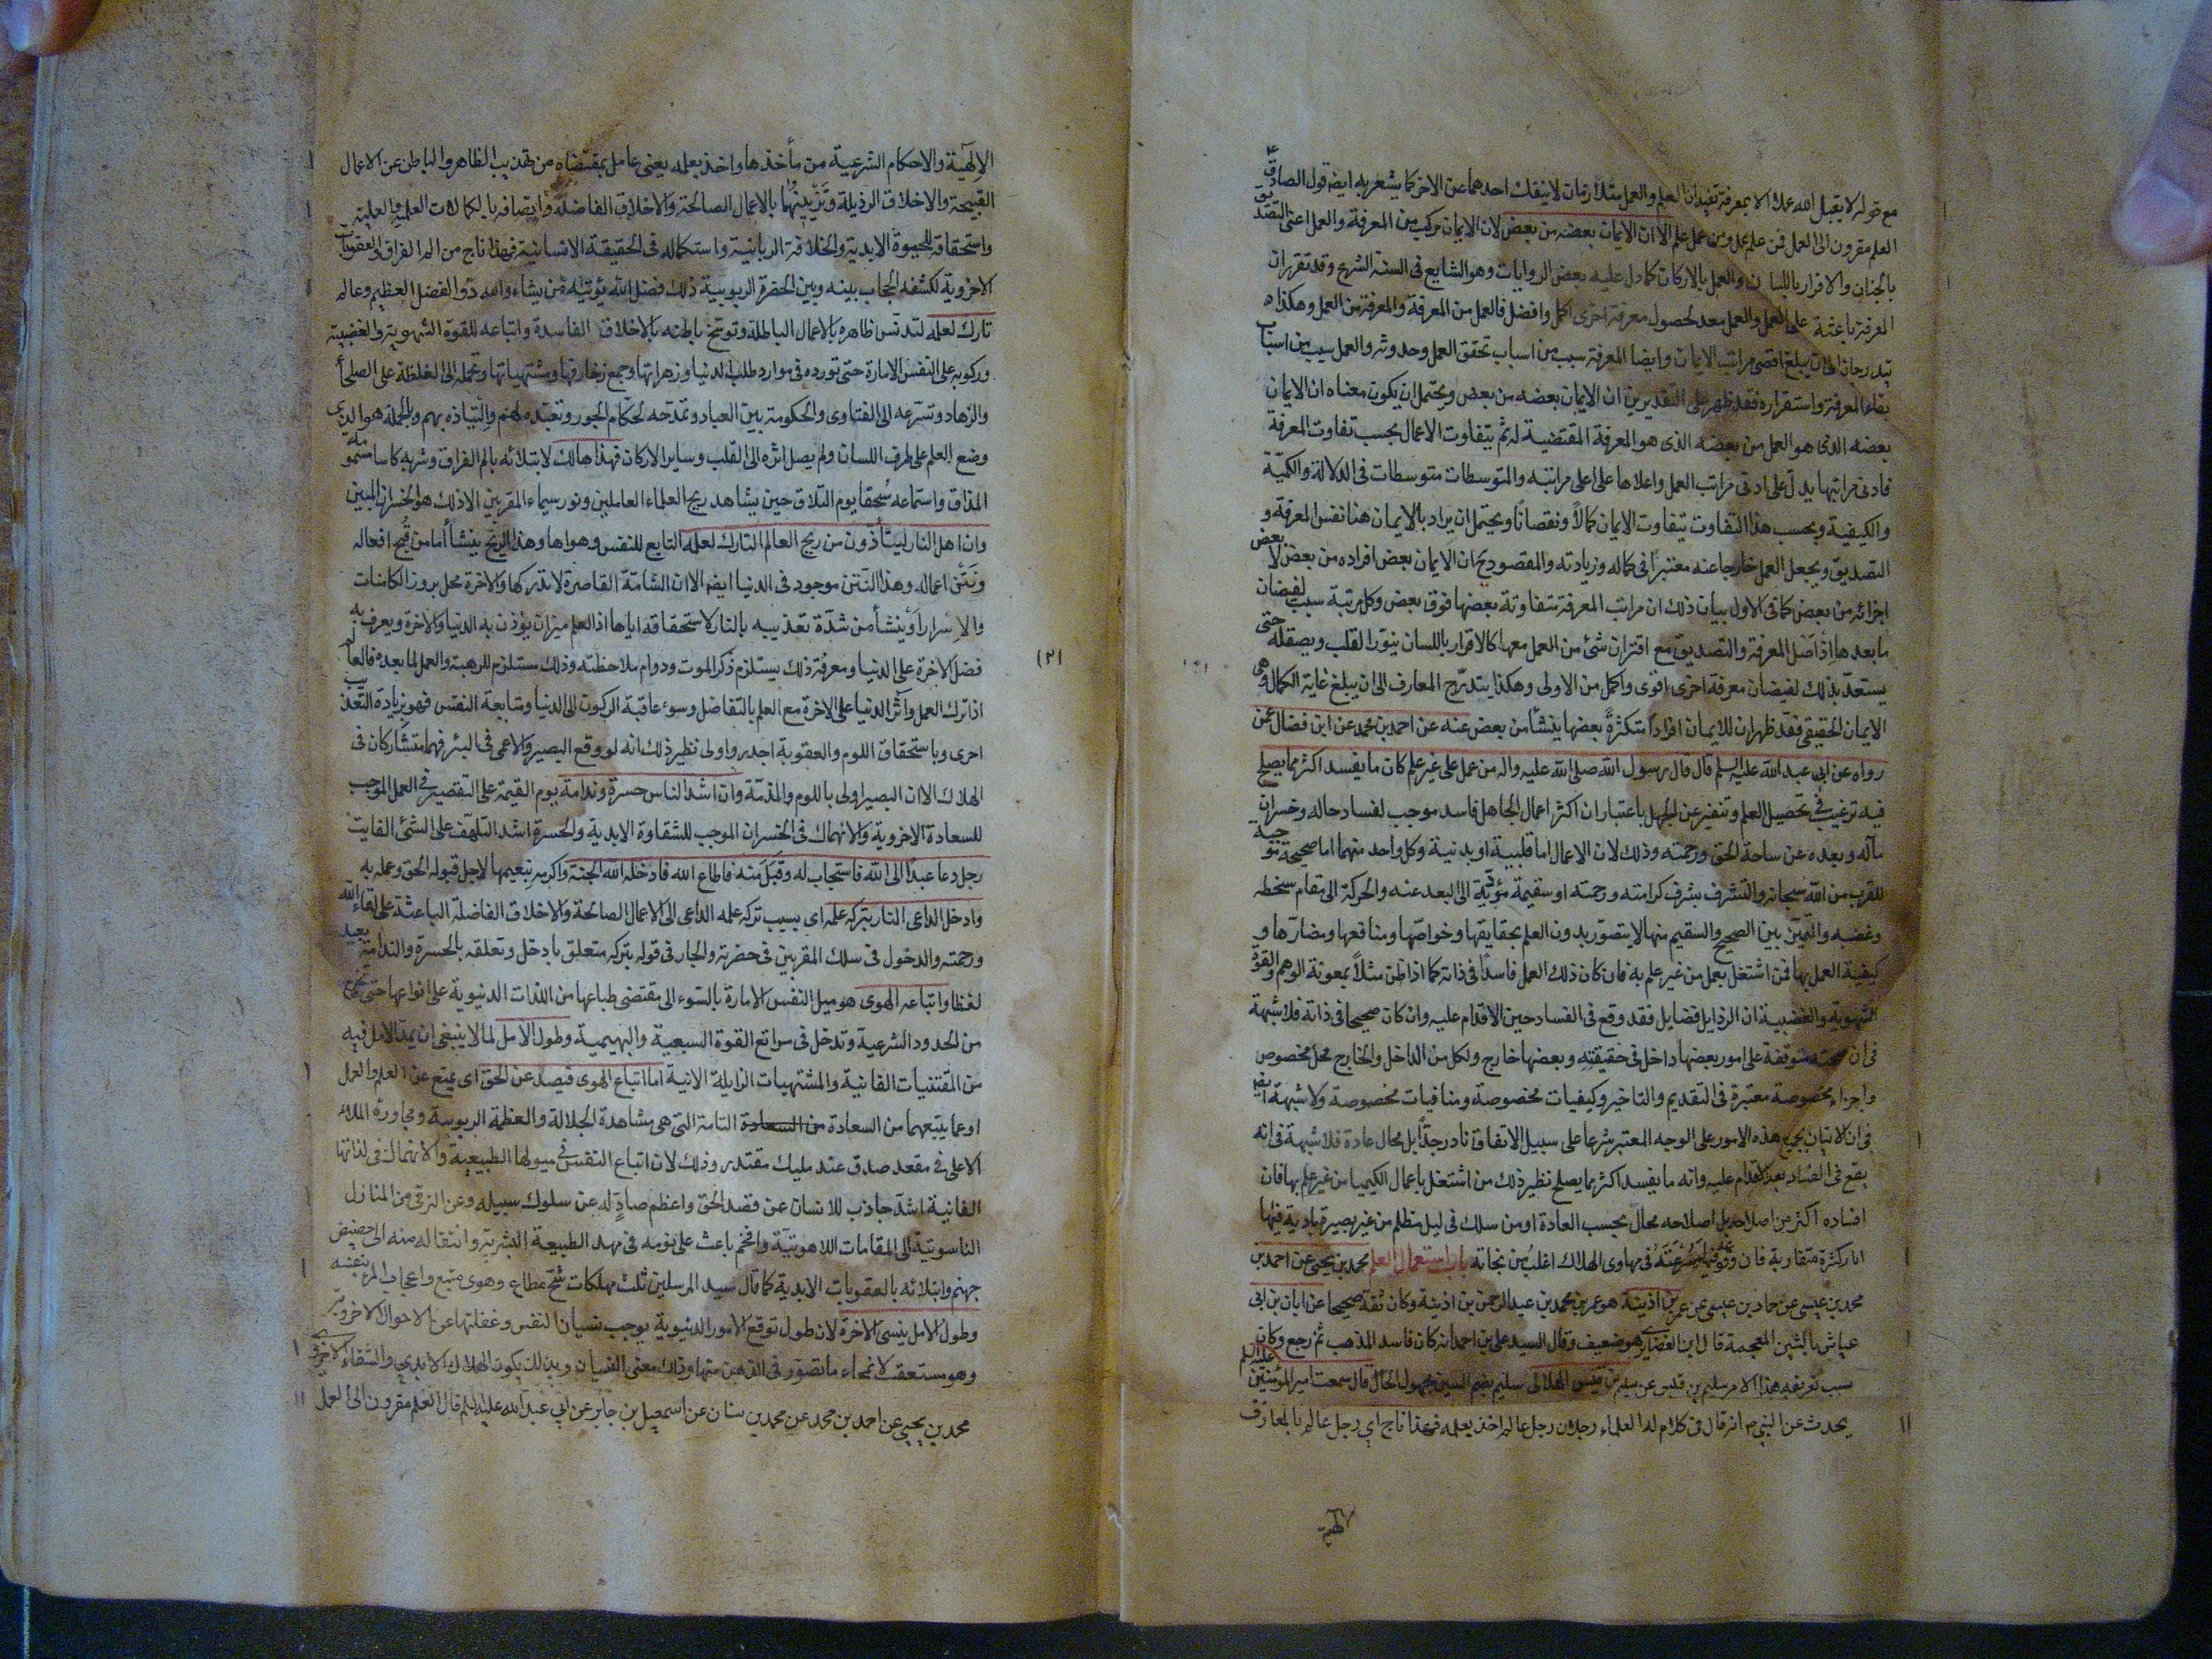 مع قوله لا يقبل الله عملا الا بمعرفة تفيد ان العلم والعمل متلازمان لا ينفك احدهما عن الاخر كما يشعر به ايضا قول الصادق ع
العلم مقرون الى العمل فمن علم عمل ومن عمل علم الا ان الايمان بعضه من بعض لان الايمان مركب من المعرفة والعمل اعنى التصديق
بالجنان والاقرار باللسان والعمل بالاركان كما دل عليه بعض الروايات وهو الشايع فى السنة الشرع وقد تقرر ان
المعرفة باعثة على العمل والعمل معد لحصول معرفة اخرى اكمل وافضل فالعمل من المعرفة والمعرفة من العمل وهكذا
يتدرجان الى ان يبلغ اقصى مراتب الايمان وايضا المعرفة سبب من اسباب تحقق العمل وحدوثه والعمل سبب من اسباب
بقاء المعرفة واستقراره فقد ظهر على التقديرين ان الايمان بعضه من بعض ويحتمل ان يكون معناه ان الايمان
بعضه الذى هو العمل من بعضه الذى هو المعرفة المقتضية له ثم يتفاوت الاعمال بحسب تفاوت المعرفة
فادنى مراتبها يدل على ادنى مراتب العمل واعلاها على اعلى مراتبه والمتوسطات متوسطات فى الدلالة والكميّة
والكيفية وبحسب هذا التفاوت يتفاوت الايمان كمالاً ونقصاناً ويحتمل ان يراد بالايمان هنا نفس المعرفة و
التصديق ويجعل العمل خارجا عنه معتبراً فى كماله وزيادته والمقصود ح ان الايمان بعض افراده من بعض لا بعض
اجزائه من بعض كما فى الاول بيان ذلك ان مراتب المعرفة متفاوتة بعضها فوق بعض وكل مرتبة سبب لفيضان
ما بعدها اذ اصل المعرفة والتصديق مع اقتران شئ من العمل معها كالاقرار باللسان ينوّر القلب ويصقله حتى
يستعدّ بذلك لفيضان معرفة اخرى اقوى واكمل من الاولى وهكذا يتدرّج المعارف الى ان يبلغ غاية الكمال وهى
الايمان الحقيقى فقد ظهر ان للايمان افراداً متكثرةً بعضها ينشأ من بعض عنه عن احمد بن محمد عن ابن فضال عمن
رواه عن ابى عبد الله عليه السلم قال قال رسول الله صلى الله عليه واله من عمل على غير علم كان ما يفسد اكثر مما يصلح
فيه ترغيب فى تحصيل العلم وتنفير عن الجهل باعتبار ان اكثر اعمال الجاهل فاسد موجب لفساد حاله وخسران
مآله وبعده عن ساحة الحق ورحمته وذلك لان الاعمال اما قلبية او بدنية وكل واحد منهما اما صحيحة موجبة
للقرب من الله سبحانه والتشرف بشرف كرامته ورحمته او سقيمة مؤدّية الى البعد عنه والحركة الى مقام سخطه
وغضبه والتميّز بين الصحيح والسقيم منها لا يتصوّر بدون العلم بحقايقها وخواصّها ومنافعها ومضارّها و
كيفية العمل بها فمن اشتغل بعمل من غير علم به فان كان ذلك العمل فاسداً فى ذاته كما اذا ظن مثلاً بمعونة الوهم والقوة
الشهوية والغضبية ان الرذايل فضايل فقد وقع فى الفساد حين الاقدام عليه وان كان صحيحا فى ذاته فلا شبهة
فى ان صحته متوقفة على امور بعضها داخل فى حقيقته وبعضها خارج ولكل من الداخل والخارج محل مخصوص
واجزاء مخصوصة معتبرة فى التقديم والتاخير وكيفيات مخصوصة ومنافيات مخصوصة ولا شبهة ايضا
فى ان الاتيان بجميع هذه الامور على الوجه المعتبر شرعا على سبيل الاتفاق نادر جدّاً بل محال عادة فلا شبهة فى انه
يقع فى الفساد بعد الاقدام عليه وانه ما يفسد اكثر مما يصلح نظير ذلك من اشتغل باعمال الكيميا من غير علم بها فان
افساده اكثر من اصلاحه بل اصلاحه محال بحسب العادة او من سلك فى ليل مظلم من غير بصيرة بادية فيها
ابار كثرة متقاربة فان وقوعه فيها وسرعته فى مهاوى الهلاك اغلب من نجاته باب استعمال العلم محمد بن يحيى عن احمد بن
محمد بن عيسى عن حماد بن عيسى عن عمر بن اذينة هو عمر بن محمد بن عبد الرحمن بن اذينة وكان ثقة صحيحا عن ابان بن ابى
عياش بالشين المعجمة قال ابن الغضايرى هو ضعيف وقال السيد على بن احمد انه كان فاسد المذهب ثم رجع وكان
سبب تعريفه هذا الامر سليم بن قيس عن سليم بن قيس الهلالى سليم بضم السين مجهول الحال قال سمعت امير المؤمنين عليه السلم
يحدث عن النبى ص انه قال فى كلام له العلماء رجلان رجل عالم اخذ بعلمه فهذا ناج اى رجل عالم بالمعارف
الالٓهيّة والاحكام الشرعية من مأخذها واخذ بعلمه يعنى عامل بمقتضاه من تهذيب الظاهر والباطن عن الاعمال
القبيحة والاخلاق الرذيلة وتَزْيينهما بالاعمال الصالحة والاخلاق الفاضلة واتصافه بالكمالات العلمية والعملية
واستحقاقه للحيوة الابدية والخلافة الربانية واستكماله فى الحقيقة الانسانية فهذا ناج من الم الفراق والعقوبات
الاخروية لكشفه الحجاب بينه وبين الحضرة الربوبية ذلك فضل الله يؤتيه من يشاء والله ذو الفضل العظيم وعالم
تارك لعلمه لتدنس ظاهره بالاعمال الباطلة وتوسخ باطنه بالاخلاق الفاسدة واتباعه للقوة الشهوية والغضبية
وركوبه على النفس الامارة حتى تورده فى موارد طلب الدنيا وزهراتها وجمع زخارفها ومشتهياتها وتحمله الى الغلظة على الصلحاء
والزهاد وتسرعه الى الفتاوى والحكومة بين العباد وتمدّحه لحكام الجور وتعبّده لهم والتباذه بهم وبالجملة هو الذى
وضع العلم على طرف اللسان ولم يصل اثره الى القلب وساير الاركان فهذا هالك لابتلائه بالم الفراق وشربه كاسا مسموم
المذاق واستماعه سُحقا يوم التلاق حين يشاهد ريح العلماء العاملين ونور سيماء المقربين الا ذلك هو الخسران المبين
وان اهل النار ليتأذّون من ريح العالم التارك لعلمه التابع للنفس وهواها وهذا الريح ينشأ اما من قُبح افعاله
ونَتْن اعماله وهذا النَتن موجود فى الدنيا ايضا الا ان الشامّة القاصرة لا تدركها والاخرة محل بروز الكامنات
والاسرار او ينشأ من شدّة تعذيبه بالنار لاستحقاقه اياها اذ العلم ميزان يؤذن به الدنيا والاخرة ويعرف به
فضل الاخرة على الدنيا ومعرفة ذلك يستلزم ذكر الموت ودوام ملاحظته وذلك مستلزم للرهبة والعمل لما بعده فالعالم
اذا ترك العمل وآثر الدنيا على الاخرة مع العلم بالتفاضل وسوء عاقبة الركون الى الدنيا ومتابعة النفس فهو بزيادة التعذيب
احرى وباستحقاق اللوم والعقوبة اجدر واولى نظير ذلك انه لو وقع البصير والاعمى فى البئر فهما متشاركان فى
الهلاك الا ان البصير اولى باللوم والمذمّة وان اشد الناس حسرة وندامة يوم القيمة على التقصير فى العمل الموجب
للسعادة الاخروية والانهماك فى الخسران الموجب للشقاوة الابدية والحسرة اشد التلهّف على الشئ الفايت
رجل دعا عبداً الى الله فاستجاب له وقَبِلَ منه فاطاع الله فادخله الله الجنة واكرمه بنعيمها لاجل قبوله الحق وعمله به
وادخل الداعى النار بتركه علمه اى بسبب تركه علمه الداعى الى الاعمال الصالحة والاخلاق الفاضلة الباعثة على لقاء الله
ورحمته والدخول فى سلك المقربين فى حضرته والجار فى قوله بتركه متعلق بادخل وتعلقه بالحسرة والندامة بعيد
لفظا واتباعه الهوى هو ميل النفس الامارة بالسوء الى مقتضى طباعها من اللذات الدنيوية على انواعها حتى تخرج
من الحدود الشرعية وتدخل فى مراتع القوة السبعية والبهيمية وطول الامل لما لا ينبغى ان يمدّ الامل فيه
من المقتنيات الفانية والمشتهيات الزايلة الانية اما اتباع الهوى فيصد عن الحق اى يمنع عن العلم والعمل
او عما يتبعهما من السعادة من السعادة التامة التى هى مشاهدة الجلالة والعظمة الربوبية ومجاورة الملاء
الاعلى فى مقعد صدق عند مليك مقتدر وذلك لان اتباع النفس فى ميولها الطبيعية والانهماك فى لذاتها
الفانية اشدّ جاذب للانسان عن قصد الحق واعظم صادٍّ له عن سلوك سبيله وعن الترقى من المنازل
الناسوتية الى المقامات اللاهوتية وافخم باعث على نومه فى مهد الطبيعة البشرية وانتقاله منه الى حضيض
جهنم وابتلائه بالعقوبات الابدية كما قال سيد المرسلين ثلث مهلكات شحّ مطاع وهوى متبع واعجاب المرء بنفسه
وطول الامل ينسى الاخرة لان طول توقع الامور الدنيوية يوجب نسيان النفس وغفلتها عن الاحوال الاخروية
وهو مستعقب لانمحاء ما تصوّر فى الذهن منها وذلك معنى النسيان وبذلك يكون الهلاك الابدى والشقاء الاخروى
محمد بن يحيى عن احمد بن محمد عن محمد بن سنان عن اسمعيل بن جابر عن ابى عبد الله عليه السلم قال العلم مقرون الى العمل